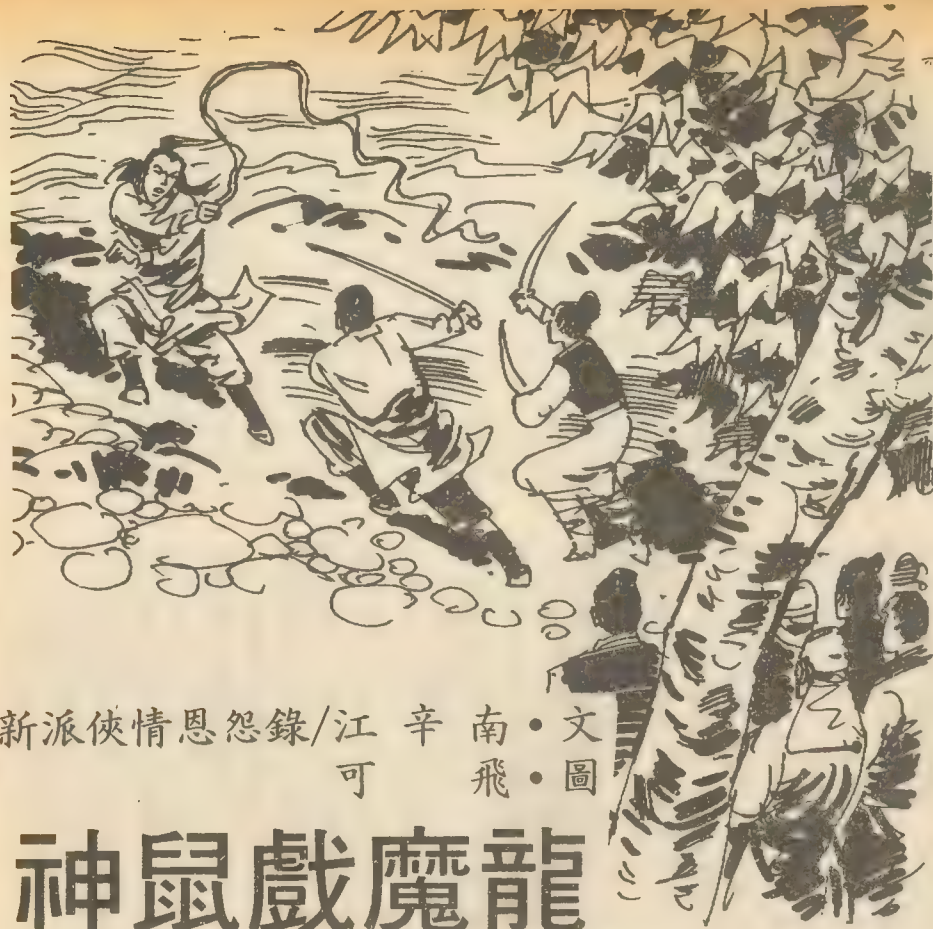 新派俠情恩怨錄/江辛南•文
可飛•圖
神鼠戲魔龍